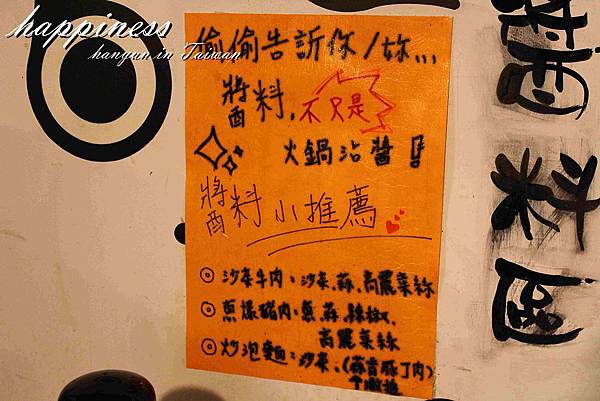 happiness
hangun.in Taiwan
偷偷告訴你/妳...
醬料,不只是
火鍋沾醬!
醬料小推薦
沙茶牛肉:沙茶.蒜.高麗菜絲
蔥爆豬肉:蔥.蒜.辣椒.
高麗菜絲
炒泡麵:沙茶.(蒜青豚丁肉)
個激推
米區